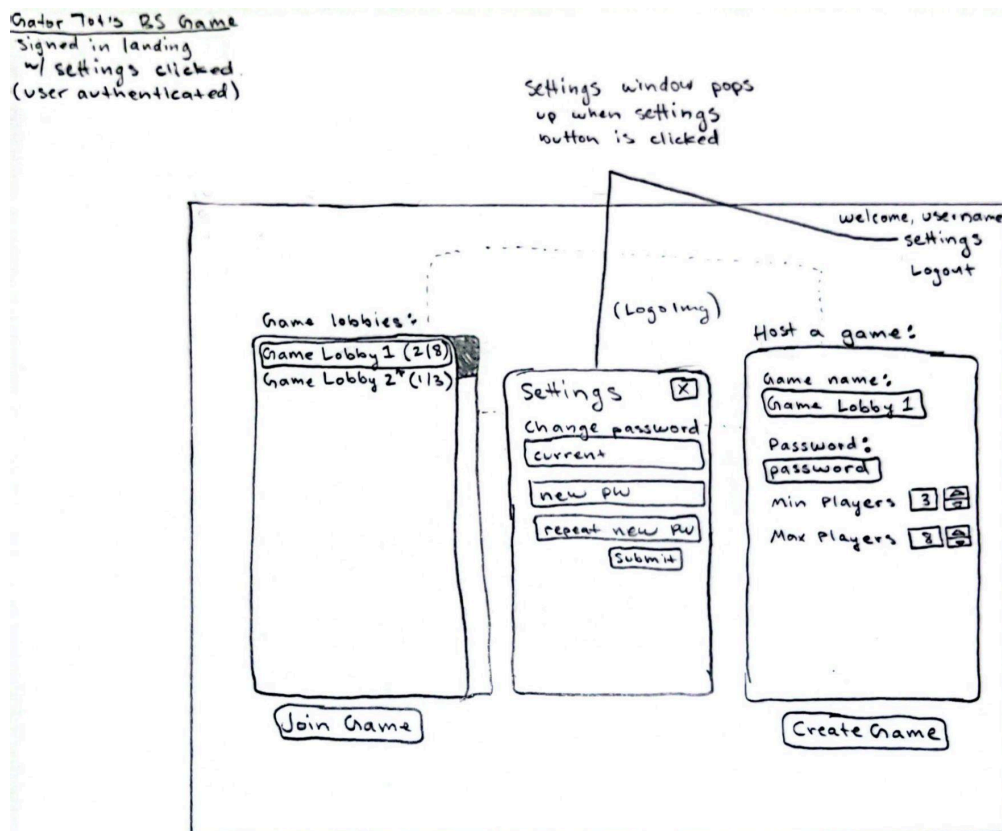 Gator Tot's BS Game
signed in landing
w/ settings clicked
(user authenticated)
settings window pops
up when settings
button is clicked
welcome, username
settings
Logout
(LogoImg)
Game lobbies:
Game Lobby 1 (2/8)
Game Lobby 2* (1/3)
Settings
X
Change password
current
new pw
repeat new pw
submit
Host a game:
Game name:
Game Lobby 1
Password:
password
Min Players 3
Max Players 8
Join Game
Create Game